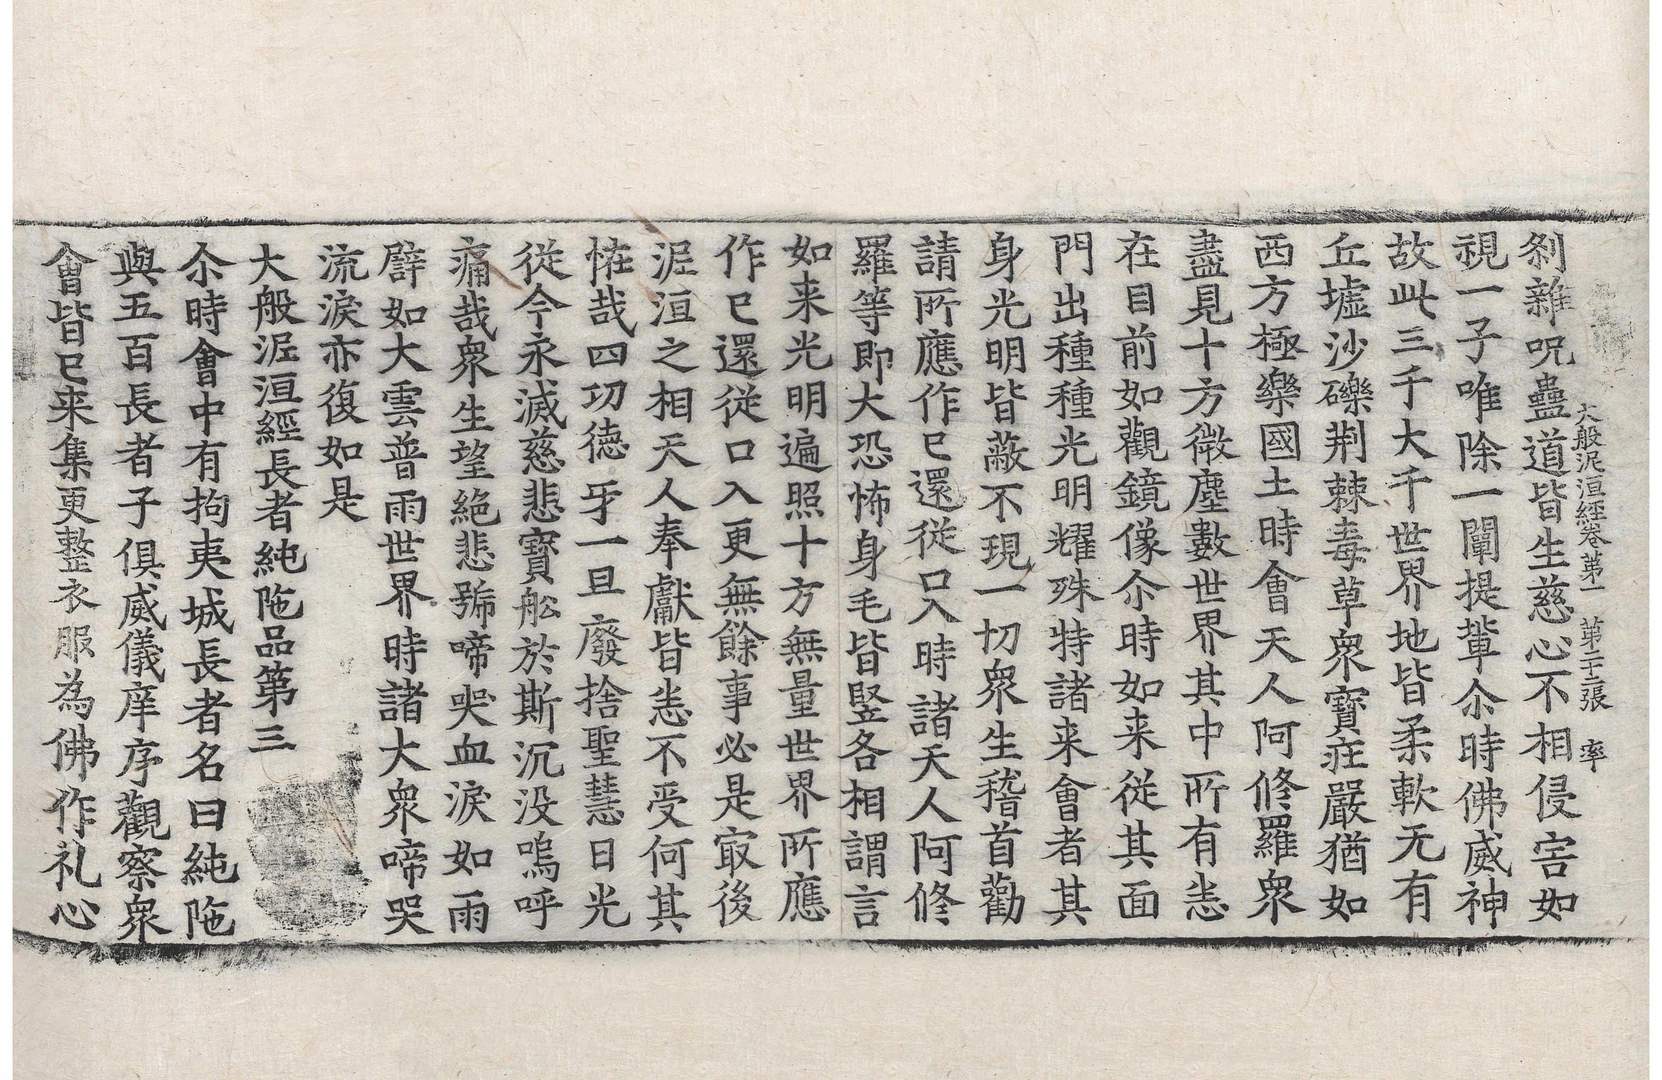 大般泥洹經卷第一　第二十三張　率
刹雜呪蠱道皆生慈心不相侵害如
視一子唯除一闡提輩尒時佛威神
故此三千大千世界地皆柔軟无有
丘墟沙礫荆棘毒草衆寶莊嚴猶如
西方極樂國土時會天人阿修羅衆
盡見十方微塵數世界其中所有悉
在目前如觀鏡像尒時如来從其面
門出種種光明耀殊特諸来會者其
身光明皆蔽不現一切衆生稽首勸
請所應作已還從口入時諸天人阿修
羅等即大恐怖身毛皆竪各相謂言
如来光明遍照十方無量世界所應
作已還從口入更無餘事必是㝡後
泥洹之相天人奉獻皆悉不受何其
恠哉四功德乎一旦廢捨聖慧日光
從今永滅慈悲寶舩於斯沉没嗚呼
痛哉衆生望絕悲號啼哭血淚如雨
譬如大雲普雨世界時諸大衆啼哭
流淚亦復如是
大般泥洹經長者純陁品第三
尒時會中有拘夷城長者名曰純陁
與五百長者子俱威儀庠序觀察衆
會皆已来集更整衣服為佛作礼心